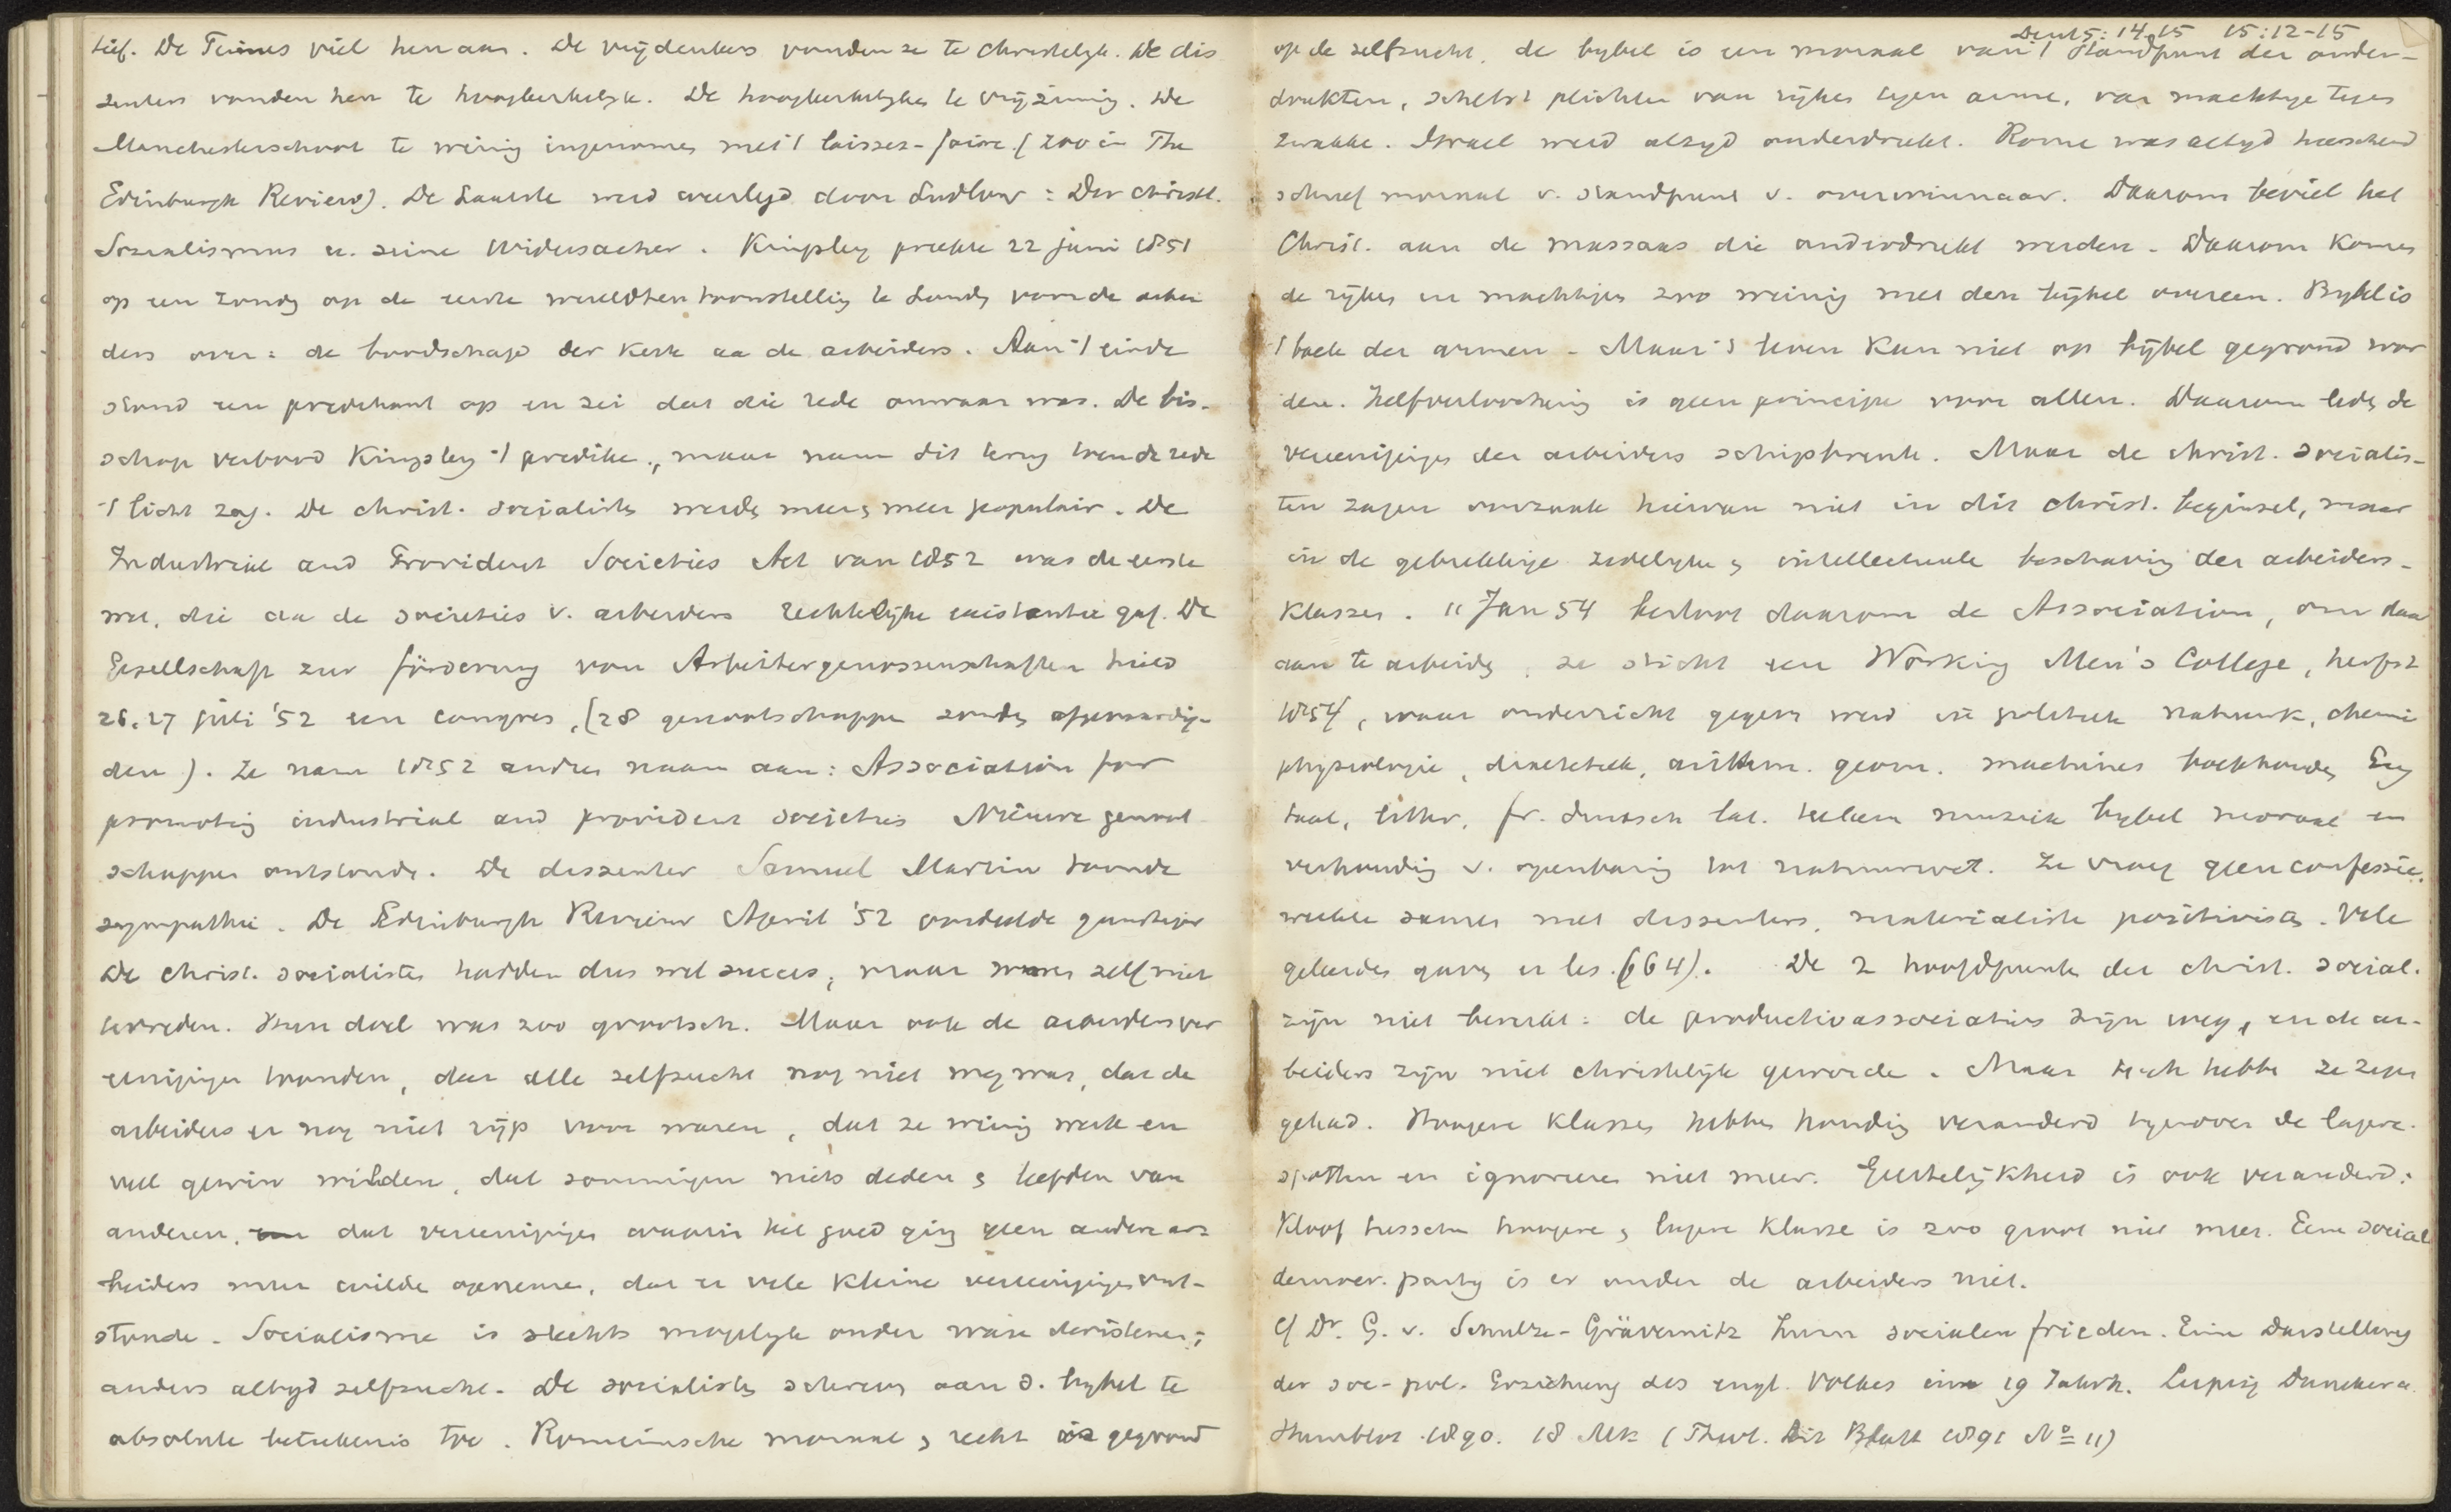 tief. De Times viel hen aan. De vrijdenkers vonden ze te christelijk. De dis
senters vonden hen te hoogkerkelijk. De hoogkerkelijken te vrijzinnig. De
Manchesterschool te weinig ingenomen met 't laissez-faire. (zoo in The
Edinburgh Review). De laatste werd weerlegd door Ludlow: Der christl.
Sozialismus u. seine Widersacher. Kingsley preekte 22 juni 1851
op een Zondag op de eerste wereldtentoonstelling te Londen voor de arbei
ders over: de boodschap der kerk aa de arbeiders. Aan 't einde
stond een predikant op en zei dat die rede onwaar was. De bis-
schop verbood Kingsley 't prediken, maar nam dit terug toen de rede
't licht zag. De christ. socialisten werden meer en meer populair. De
Industrial and Provident Societies Act van 1852 was de eerste
wet, die aa de societies v. arbeiders rechtelijke existentie gaf. De
Gesellschaft zur förderung von Arbeitergenossenschaften hield
26.27 juli '52 een congres, (28 genootschappen zonden afgevaardig-
den). Ze nam 1852 andren naam aan: Association for
promoting industrial and provident societies Nieuwe genoot
schappen ontstonden. De dissenter Samuel Martin toonde
sympathie. De Edinburgh Review April '52 oordeelde gunstiger
De christ. socialisten hadden dus wel succes, maar waren zelf niet
tevreden. Hun doel was zoo grootsch. Maar ook de arbeidersver
eenigingen toonden, dat alle zelfzucht nog niet weg was, dat de
arbeiders er nog niet rijp voor waren, dat ze weinig werk en
veel gewin wilden, dat sommigen niets deden en leefden van
anderen, dat vereenigingen waarin het goed ging geen andere ar=
beiders meer wilde opnemen, dat er vele kleine vereenigingen ont-
stonde. Socialisme is slechts mogelijk onder ware christenen;
anders altijd zelfzucht. De socialisten schreven aan d. bijbel te
absolute beteekenis toe. Romeinsche moraal en recht is gegrond
Deut 5:14.15 15:12-15
op de zelfzucht, de bijbel is een moraal van 't standpunt der onder-
drukten, schetst plichten van rijken tegen arme, van machtige tegen
zwakke. Israel werd altijd onderdrukt. Rome was altijd heerschend
schreef moraal v. standpunt v. overwinnaar. Daarom beviel het
Christ. aan de massaas die onderdrukt werden. Daarom komen
de rijken en machtigen zoo weinig met den bijbel overeen. Bijbel is
't boek der armen. Maar 't leven kan niet op bijbel gegrond wor
den. Zelfverloochening is geen principe voor allen. Daarom leden de
vereenigingen der arbeiders schipbreuk. Maar de christ. socialis-
ten zagen oorzaak hiervan niet in dit christ. beginsel, maar
in de gebrekkige zedelijke en intellectueele beschaving der arbeiders-
klassen. 11 Jan 54 besloot daarom de Association, om daar
aan te arbeiden, ze sticht een Working Men's College, herfst
1854, waar onderricht gegeven werd in politiek natuurk. chemie
physiologie, dialektiek, arithm. geom. machines boekhouden Eng
taal, litter. fr. duitsch lat. teeken muziek bijbel moraal en
verhouding v. openbaring tot natuurwet. Ze vroeg geen confessie.
werkte samen met dissenters, materialisten positivisten. Vele
geleerden gaven er les. (664). De 2 hoofdpunten der christ. social.
zijn niet bereikt: de productivassociaties zijn weg, en de ar-
beiders zijn niet christelijk geworde. Maar toch hebben ze zegen
gehad. Hoogere klassen hebben houding veranderd tegenover de lagere.
spotten en ignoreeren niet meer. Geestelijkheid is ook veranderd:
Kloof tusschen hoogere en lagere klasse is zoo groot niet meer. Eene social
democr. partij is er onder de arbeiders niet.
Cf Dr. G. v. Schulze-Grävernitz Zum socialen frieden. Eine Darstellung
der soc-pol. Erziehung des engl. Volkes im 19 Jahrh. Leipzig Duncker u.
Humblot 1890. 18 Mk (Theol. Lit Blatt 1891 No 11)